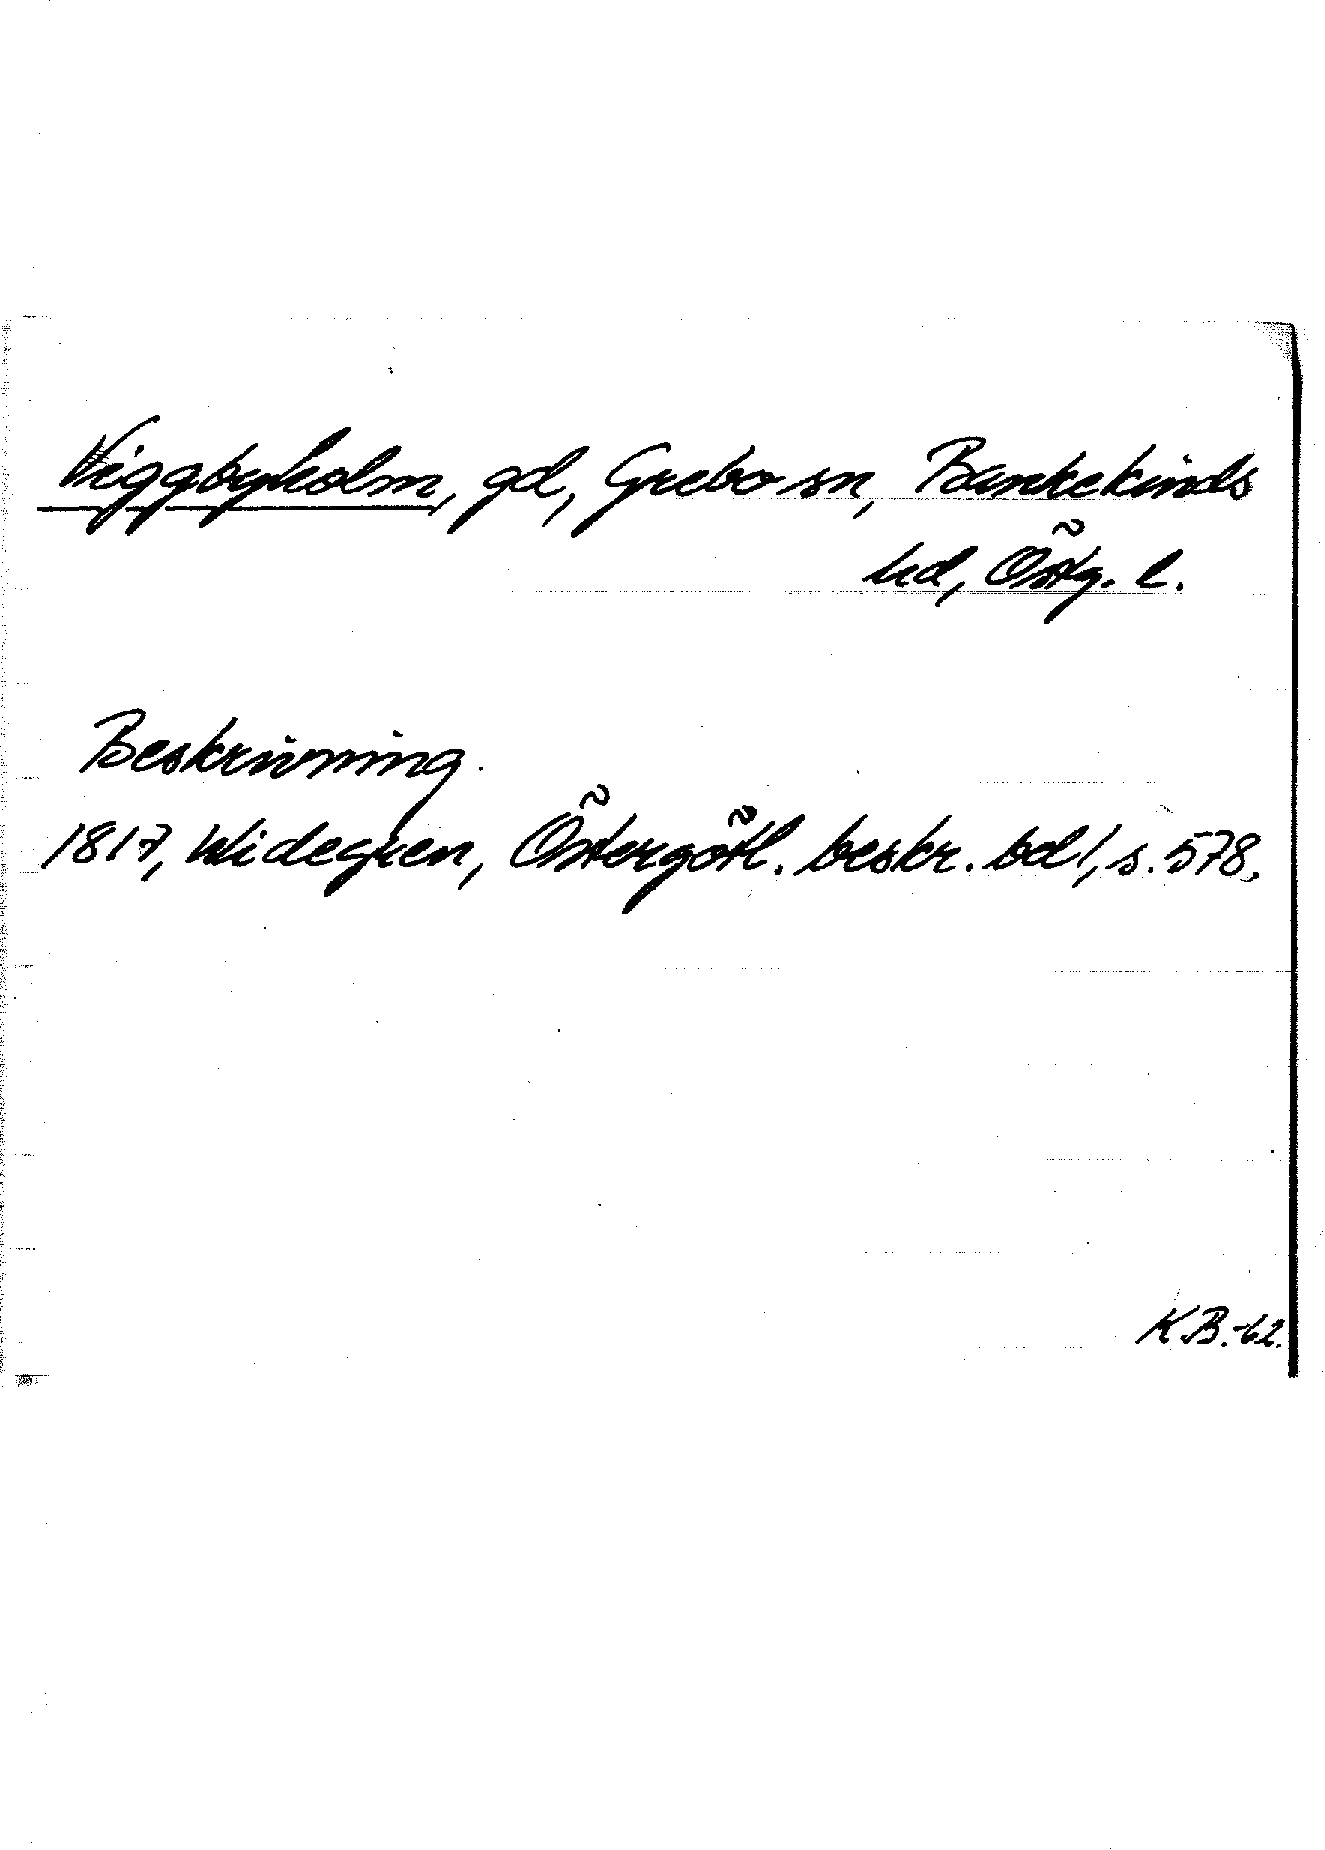 Viggbyholm, gd, Grebo sn, Bankekinds
hd, Östg. l.
Beskrivning.
1817, Widegren, Östergötl. beskr. bd 1, s. 578.
K.B.-62.